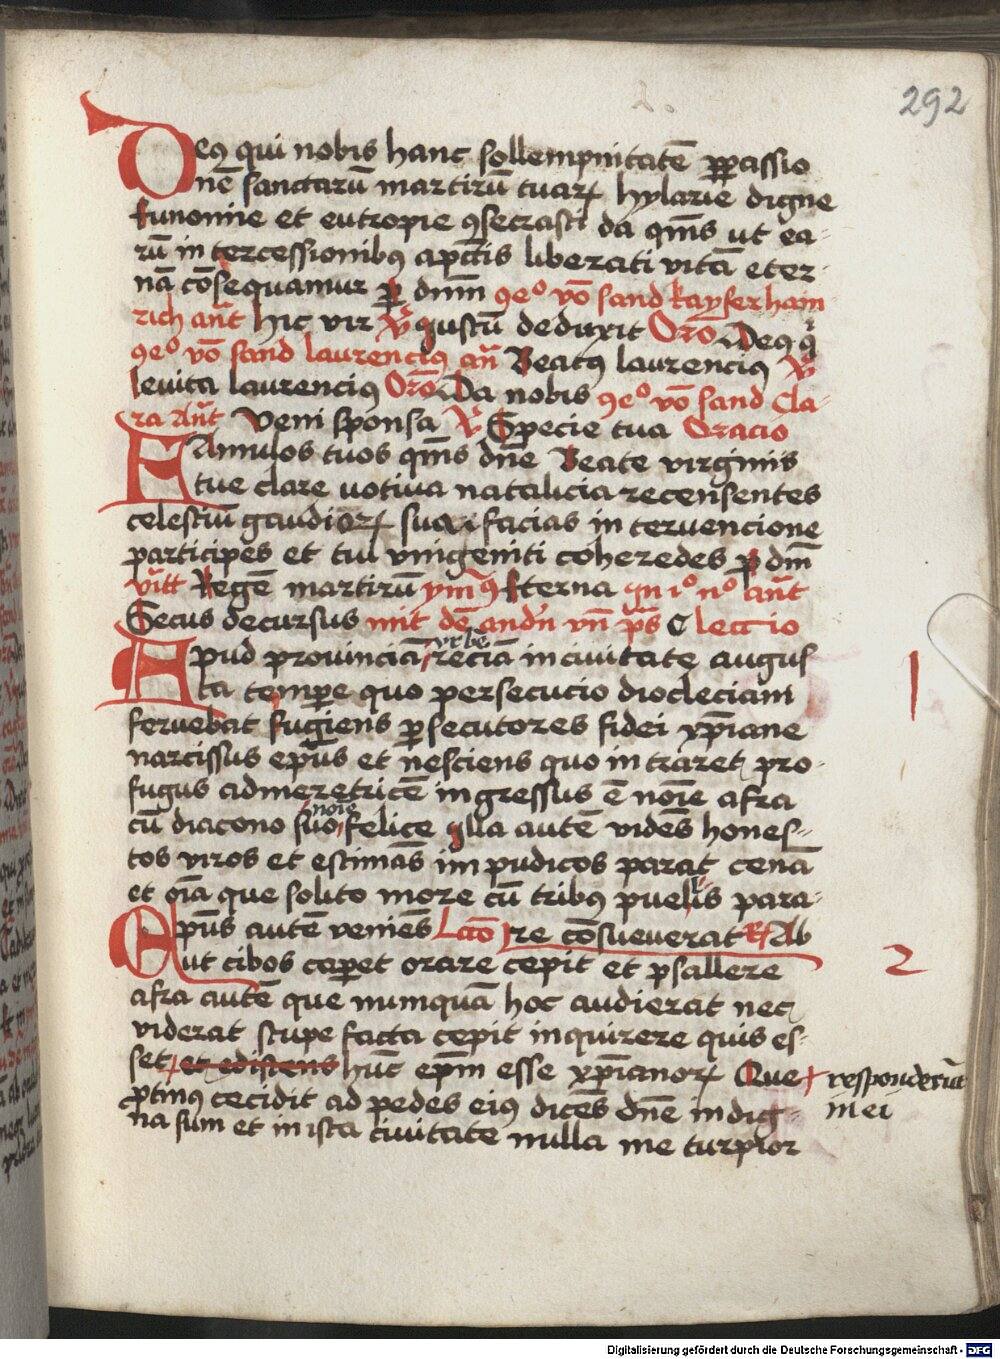 292
Deꝰ qui nobis hanc sollempnitatē ꝑpassio
nē sanctarū martirū tuaꝝ hylarie digne
Eunomie et eutropie ꝯsecrasti da qm̄s ut ea-
rū intercessionibꝰ a pctīs liberati vitā eter-
nā cōsequamur ꝑ dnm̄ ꝯeº vō sand kayser hain
rich ant̄ hic vir ℣ iustū deduxit Orō Deꝰ qi
ꝯeº vō sand laurenciꝰ an̄ Beatꝰ laurenciꝰ ℣
levita laurenciꝰ Orō Da nobis ꝯeº vō sand Cla-
ra Ant̄ Veni sponsa ℣ Specie tua Oracio
FAmulos tuos qm̄s dn̄e Beate virginis
tue clare votiva natalicia recensentes
celestiū gaudioꝝ sua facias intervencione
participes et tui vnigeniti coheredes ꝑ dm̄
vītt Regē martirū ym̄ꝰ Eterna in iº nº ant̄
Secus decursus mit dē andn̄ vn̄ ps̄ C lectio
vrbē
Apud provinciā reciā in civitate augus
ta tempꝑe quo persecucio diocleciani
fervebat fugiens ꝑsecutores fidei xp̄iane
narcissus epūs et nesciens quo intraret pro-
fugus ad meretricē ingressus ē noīe afra
noīe
cū diacono suo felice illa autē vidēs hones-
tos viros et estimās impudicos parat cenā
et oīa que solito more cū tribꝰ puellis para-
Epūs autē veniēs Lccō re cōsueverat ℟ Ab
ut cibos caꝑet orare cepit et psallere
afra autē que numquā hoc audierat nec
viderat stupefacta cepit inquirere quis es-
set et edistens hūc epm̄ esse xp̄ianoꝝ Que
responderūt
ꝓtinꝰ cecidit ad pedes eiꝰ dicēs dn̄e indig-
iii ei
na sum et in ista civitate nulla me turpior
1
2
Digitalisierung gefördert durch die Deutsche Forschungsgemeinschaft - DFG